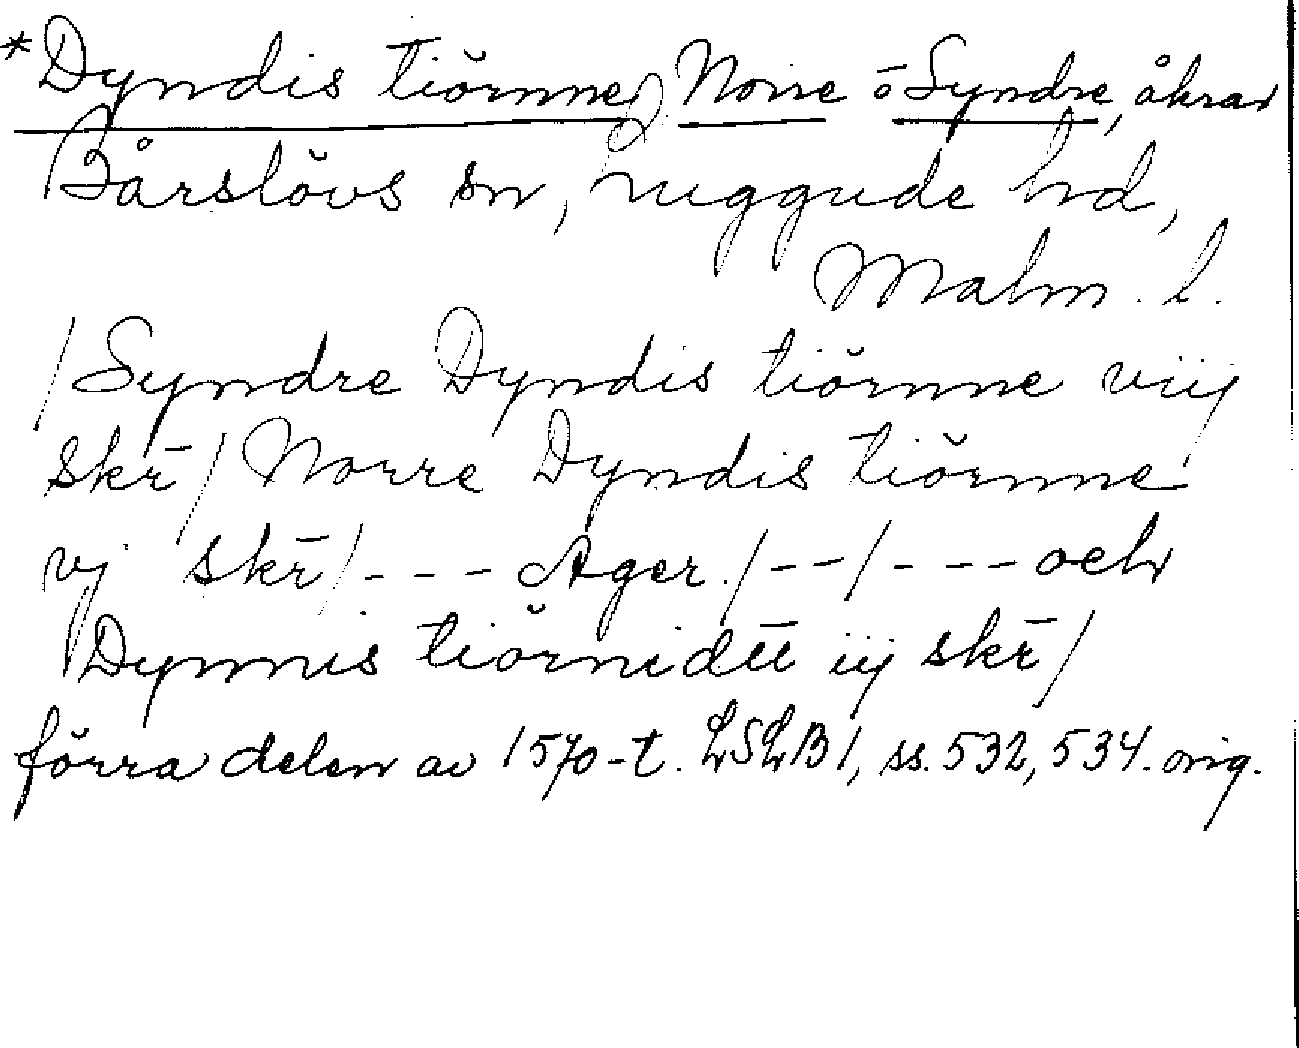 *Dyndis tiörnne, Norre o Syndre, åkrar
Bårslövs sn, Luggude hd,
Malm. l.
/Syndre Dyndis tiörnne viij
skr̄/ Norre Dyndis tiörnne
vj skr̄/- - - Ager./- - -/- - - - och
Dynnis tiörnidtt iij skr̄/
förra delen av 1570-t. LSLB1, ss. 532, 534. orig.